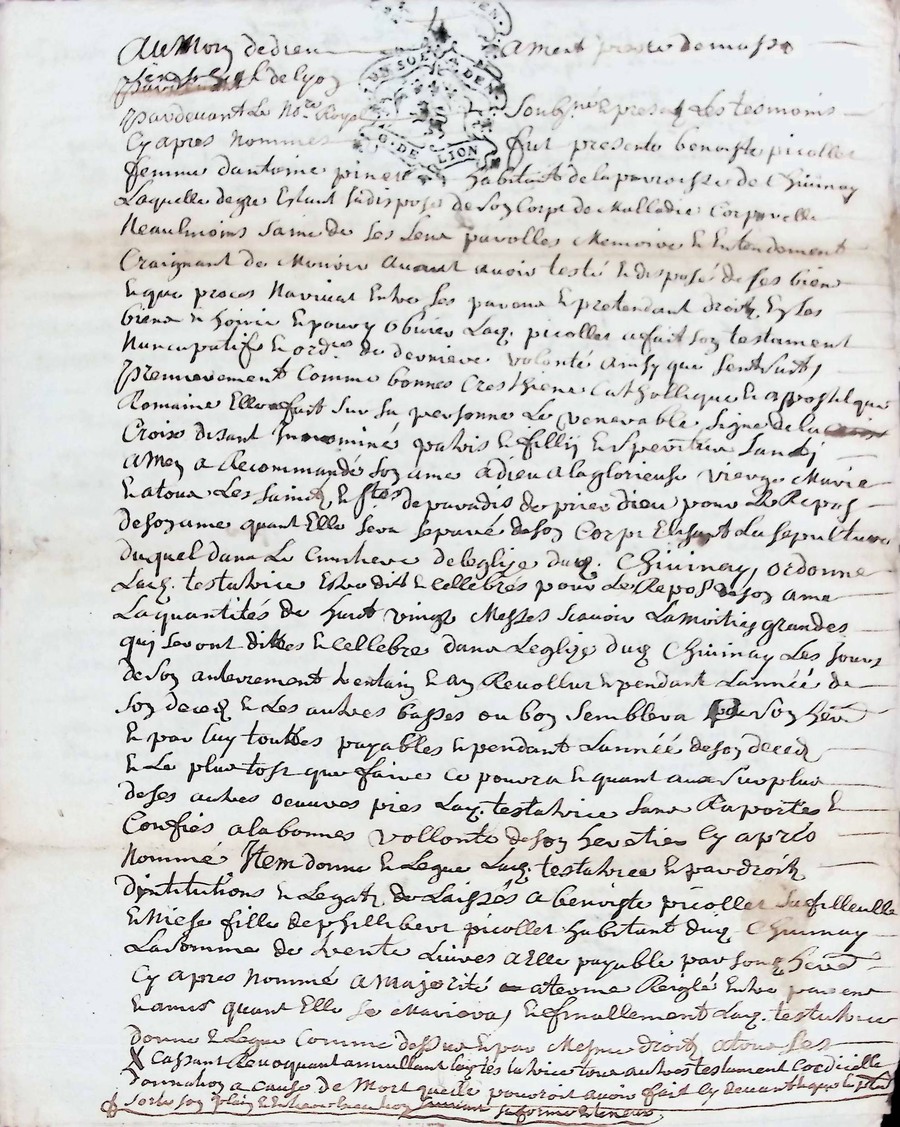 Au Nom de dieu Amen
de Lyon
pardevant Le no.re Royal Soubs.né Et présent Les tesmoins
UN SOL DEN
G. DE LION
Cy apres Nommés fut presente benoiste picollet
femme dantoine pinet habitant de la parroisse de Chivinay
Laquelle de gre Estant Indispose de Soy Corps de Malladie Corporelle
Neaulmoins Saine de Ses Sens parolles Memoire Et Entendement
Craignant de Mourir avant avoir testé Et disposé de Ses biens
Et que proces Naviva Entre Ses parans Et pretendant droitz En Ses
biens Et hoirie Et pour y obvier Laq. picollet a fait Soy testament
Nuncupatif Et ord.ce de derniere volonté ainsy que Sensuits
premierement Comme bonnes Cresthiene Catholique Et apostolique
Romaine Elle a fait Sur Sa personne Le venerable Signe de la
Croix disant Innominé patris Et fillij Et Speritus Santj
Amen a Recommandé Soy ame a dieu a la glorieuse vierge Marie
Et a tous Les Saincts Et Stes de paradis de prier dieu pour Le Repos
de Soy ame quant Elle Sera Separé de Soy Corps Elisant La Sepulture
duquel dans Le Cimetiere de leglise dudq. Chivinay, ordonne
Laq. testatrice Estre dits Et Cellebrés pour Le Repos de Soy ame
La quantités de huit vingt Messes Scavoir La moities grandes
qui Seront dittes Et Cellebre dans Leglise dudq Chivinay Les Jours
de Soy anterrement trentain Et an Revollus Et pendant Lannéé de
Soy decedz Et Les autres basses ou bon Semblera a Soy heré
Et par luy touttes payables Et pendant Lannéé de Soy decedz
Et Le plus tost que faire Ce pourra Et quant aux Surplus
de Ses autres oeuvres pies Laq. testatrice Sans Raportes Et
Confiés a la bonnes vollonté de Soy heretier Cy aprés
Nommé Item donne Et Legue Laq. testatrice Et par droits
dintitutions Et Legatz de Laissés a benoiste picollet Sa filleulle
Et Niese fille de phillibert picollet habitant dudq Chivinay
La Somme de trente Livres a Elle payable par Sondq heré
Cy apres Nommé a Majorité a terme Reiglé Entre parent
Et amis quant Elle Se Mariera, Et finallement Laq. testatrice
donne Et Legue Comme dessus Et par Mesme droits a tous Ses
X Cassant Revoquant annullant Laq testatrice tous autres testament Coedicille
donnation a Cause de Mort quelle pourroit avoir fait Cy devant